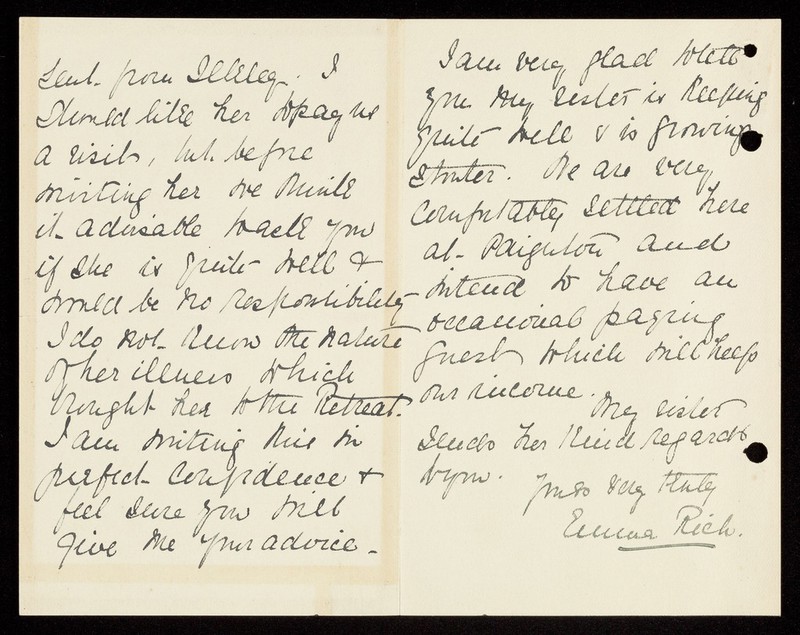 sent from Ilkley. I
should like her to pay us
a visit, but before
inviting her we think
it advisable to ask you
if she is quite well &
would be no responsibility
I do not know the nature
of her illness which
brought her to the Retreat.
I am writing this in
perfect confidence &
feel sure you will
give me your advice -
I am very glad to tell
you my sister is keeping
quite well & is growing
stouter. We are very
comfortably settled here
at Paignton and
intend to have an
occasional paying
guest which will help
our income.
My sister
sends her kind regards
to you.
Yours very truly
Emma Rich.